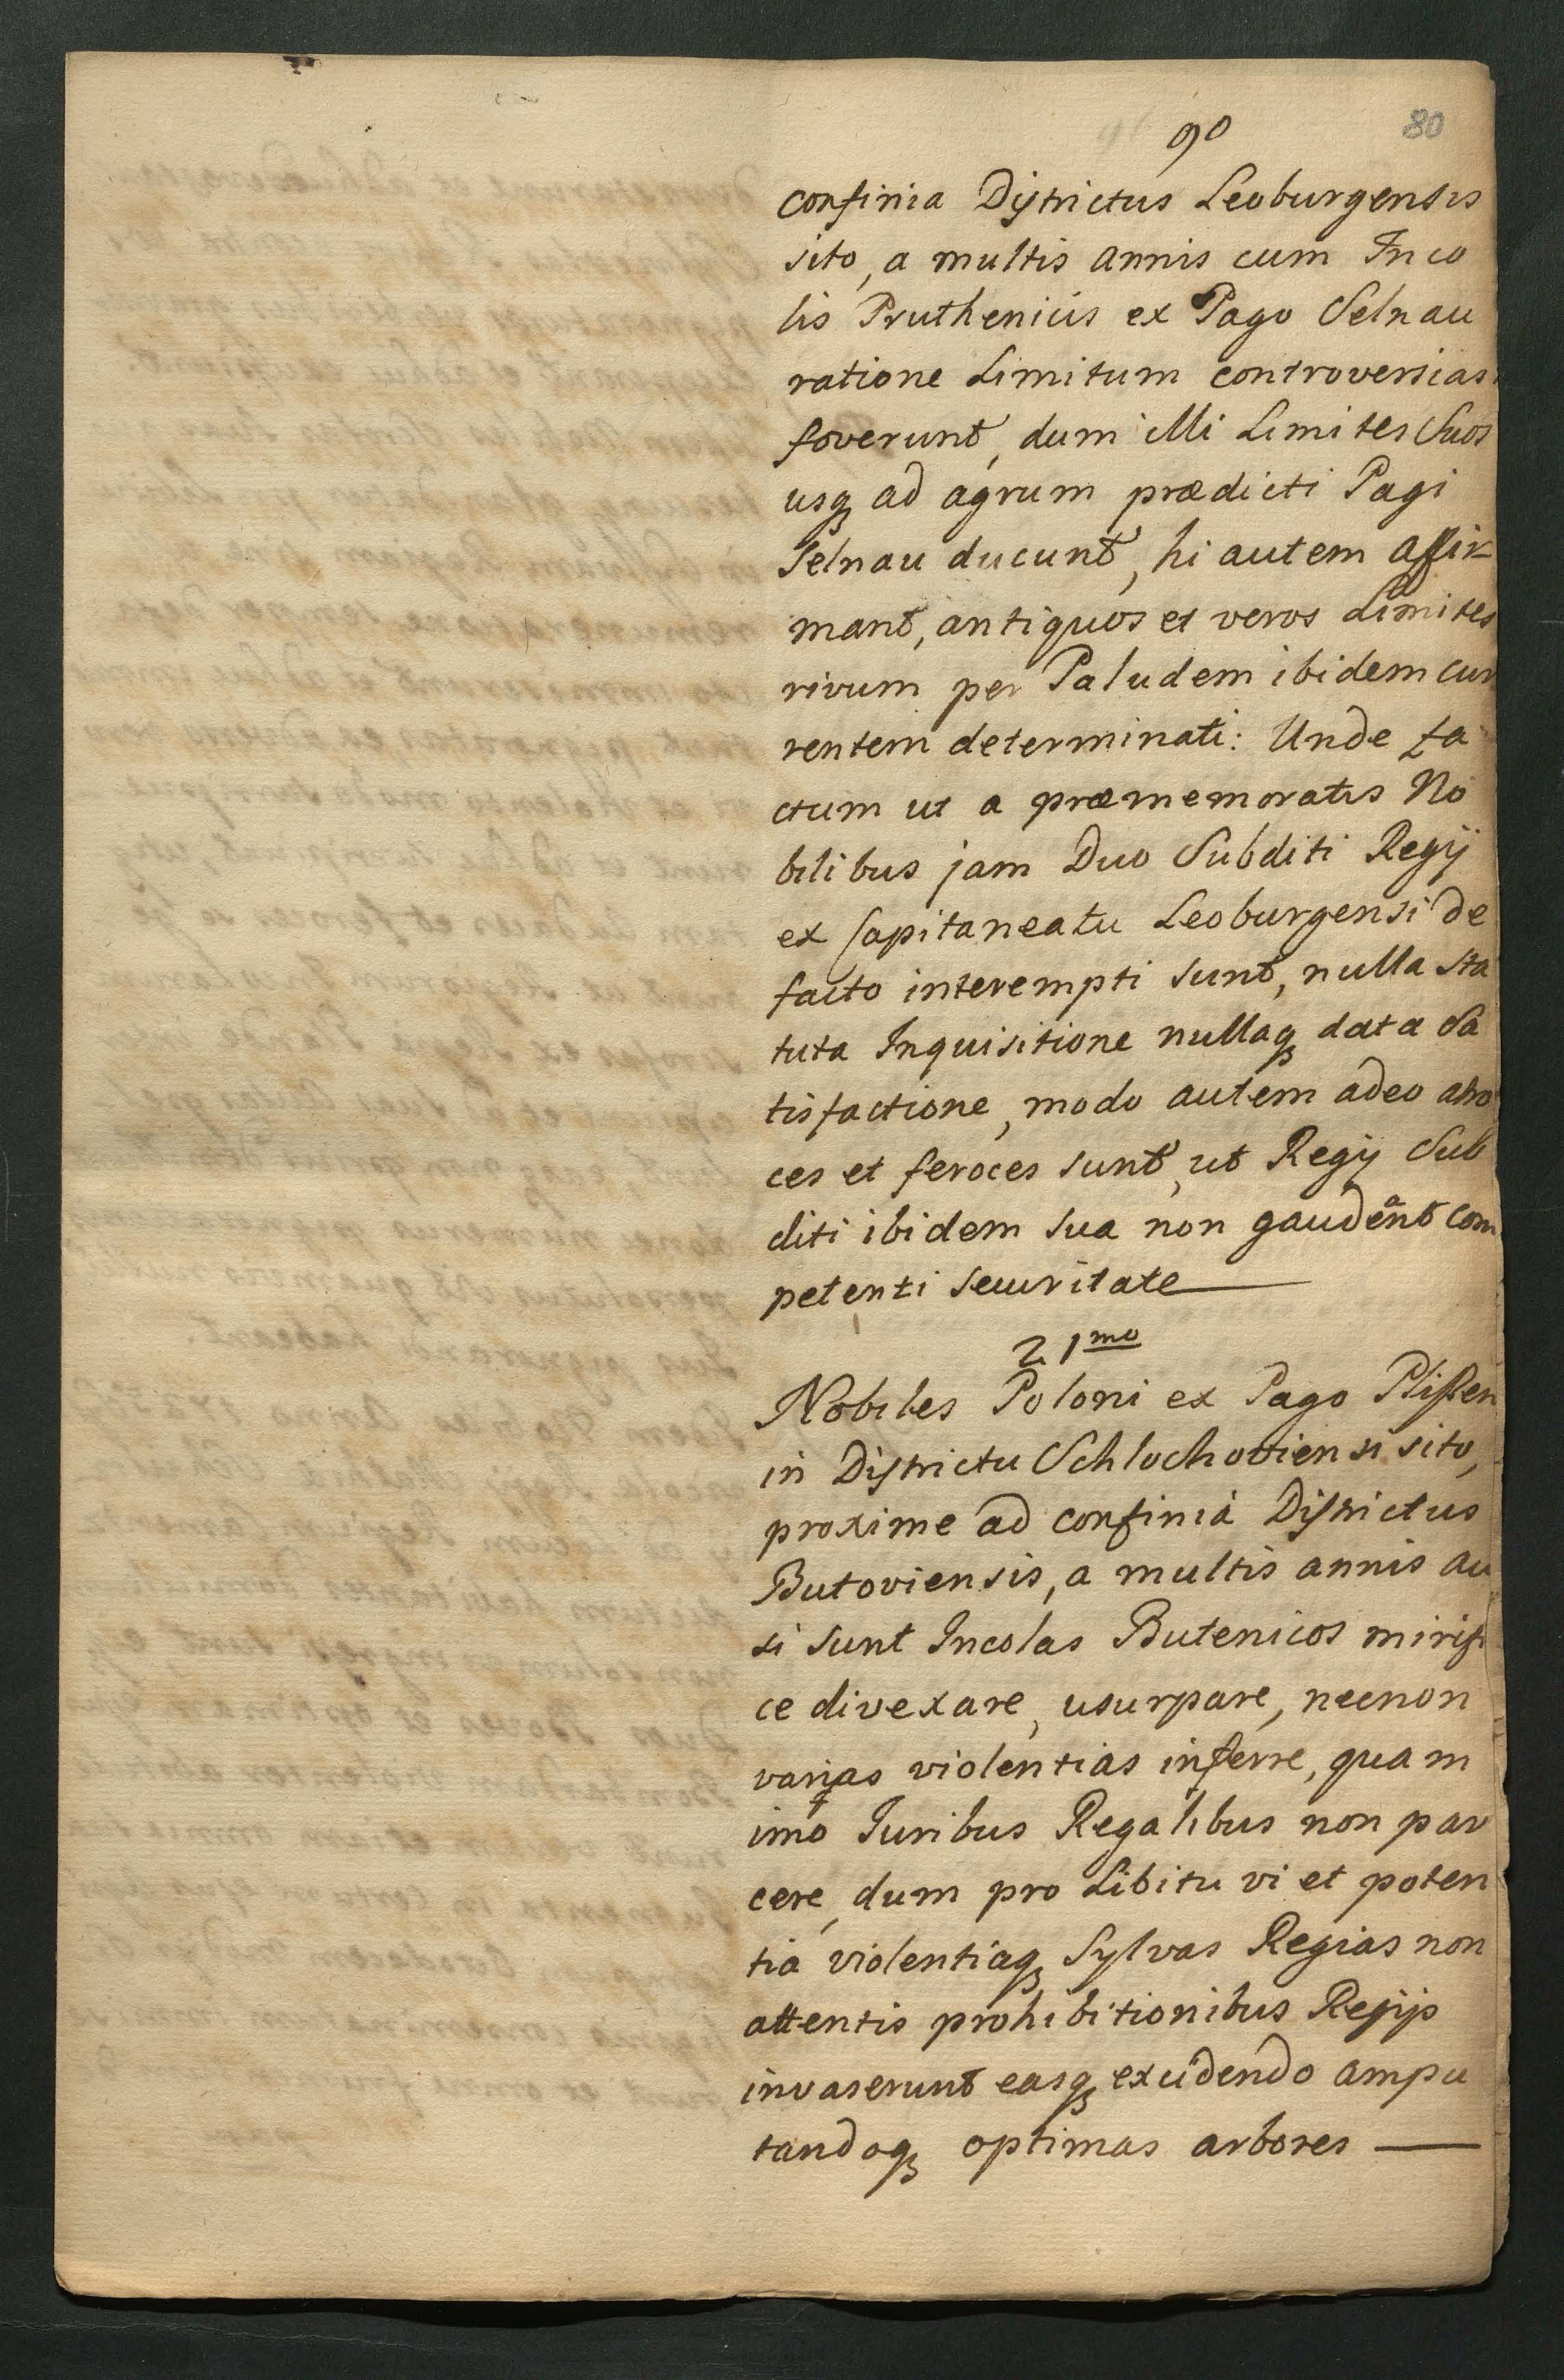 90
80
confinia Districtus Leoburgensis
sito, a multis annis cum Inco
lis Pruthenicis ex Pago Selnau
ratione Limitum controversias
foverunt, dum illi Limites Suos
usq ad agrum prædicti Pagi
Selnau ducunt, hi autem affir
mant, antiquos et veros Limites
rivum per Paludem ibidem cur
rentem determinati: Unde fa
ctum ut a præmemoratis No
bilibus jam Duo Subditi Regij
ex Capitaneatu Leoburgensi de
facto interempti sunt, nulla sta
tuta Inquisitione nullaq data Sa
tisfactione, modo autem adeo atro
ces et feroces sunt, ut Regij Sub
diti ibidem sua non gaudeant com
petenti securitate
21mo
Nobiles Poloni ex Pago
in Districtu Schlochoviensi sito,
proxime ad confinia Districtus
Butoviensis, a multis annis au
si sunt Incolas Butenicos mirifi
ce divexare, usurpare, necnon
varias violentias inferre, quam
imo Juribus Regalibus non par
cere, dum pro Libitu vi et poten
tia violentiaq Sylvas Regias non
attentis prohibitionibus Regijs
invaserunt easq excidendo ampu
tandoq optimas arbores